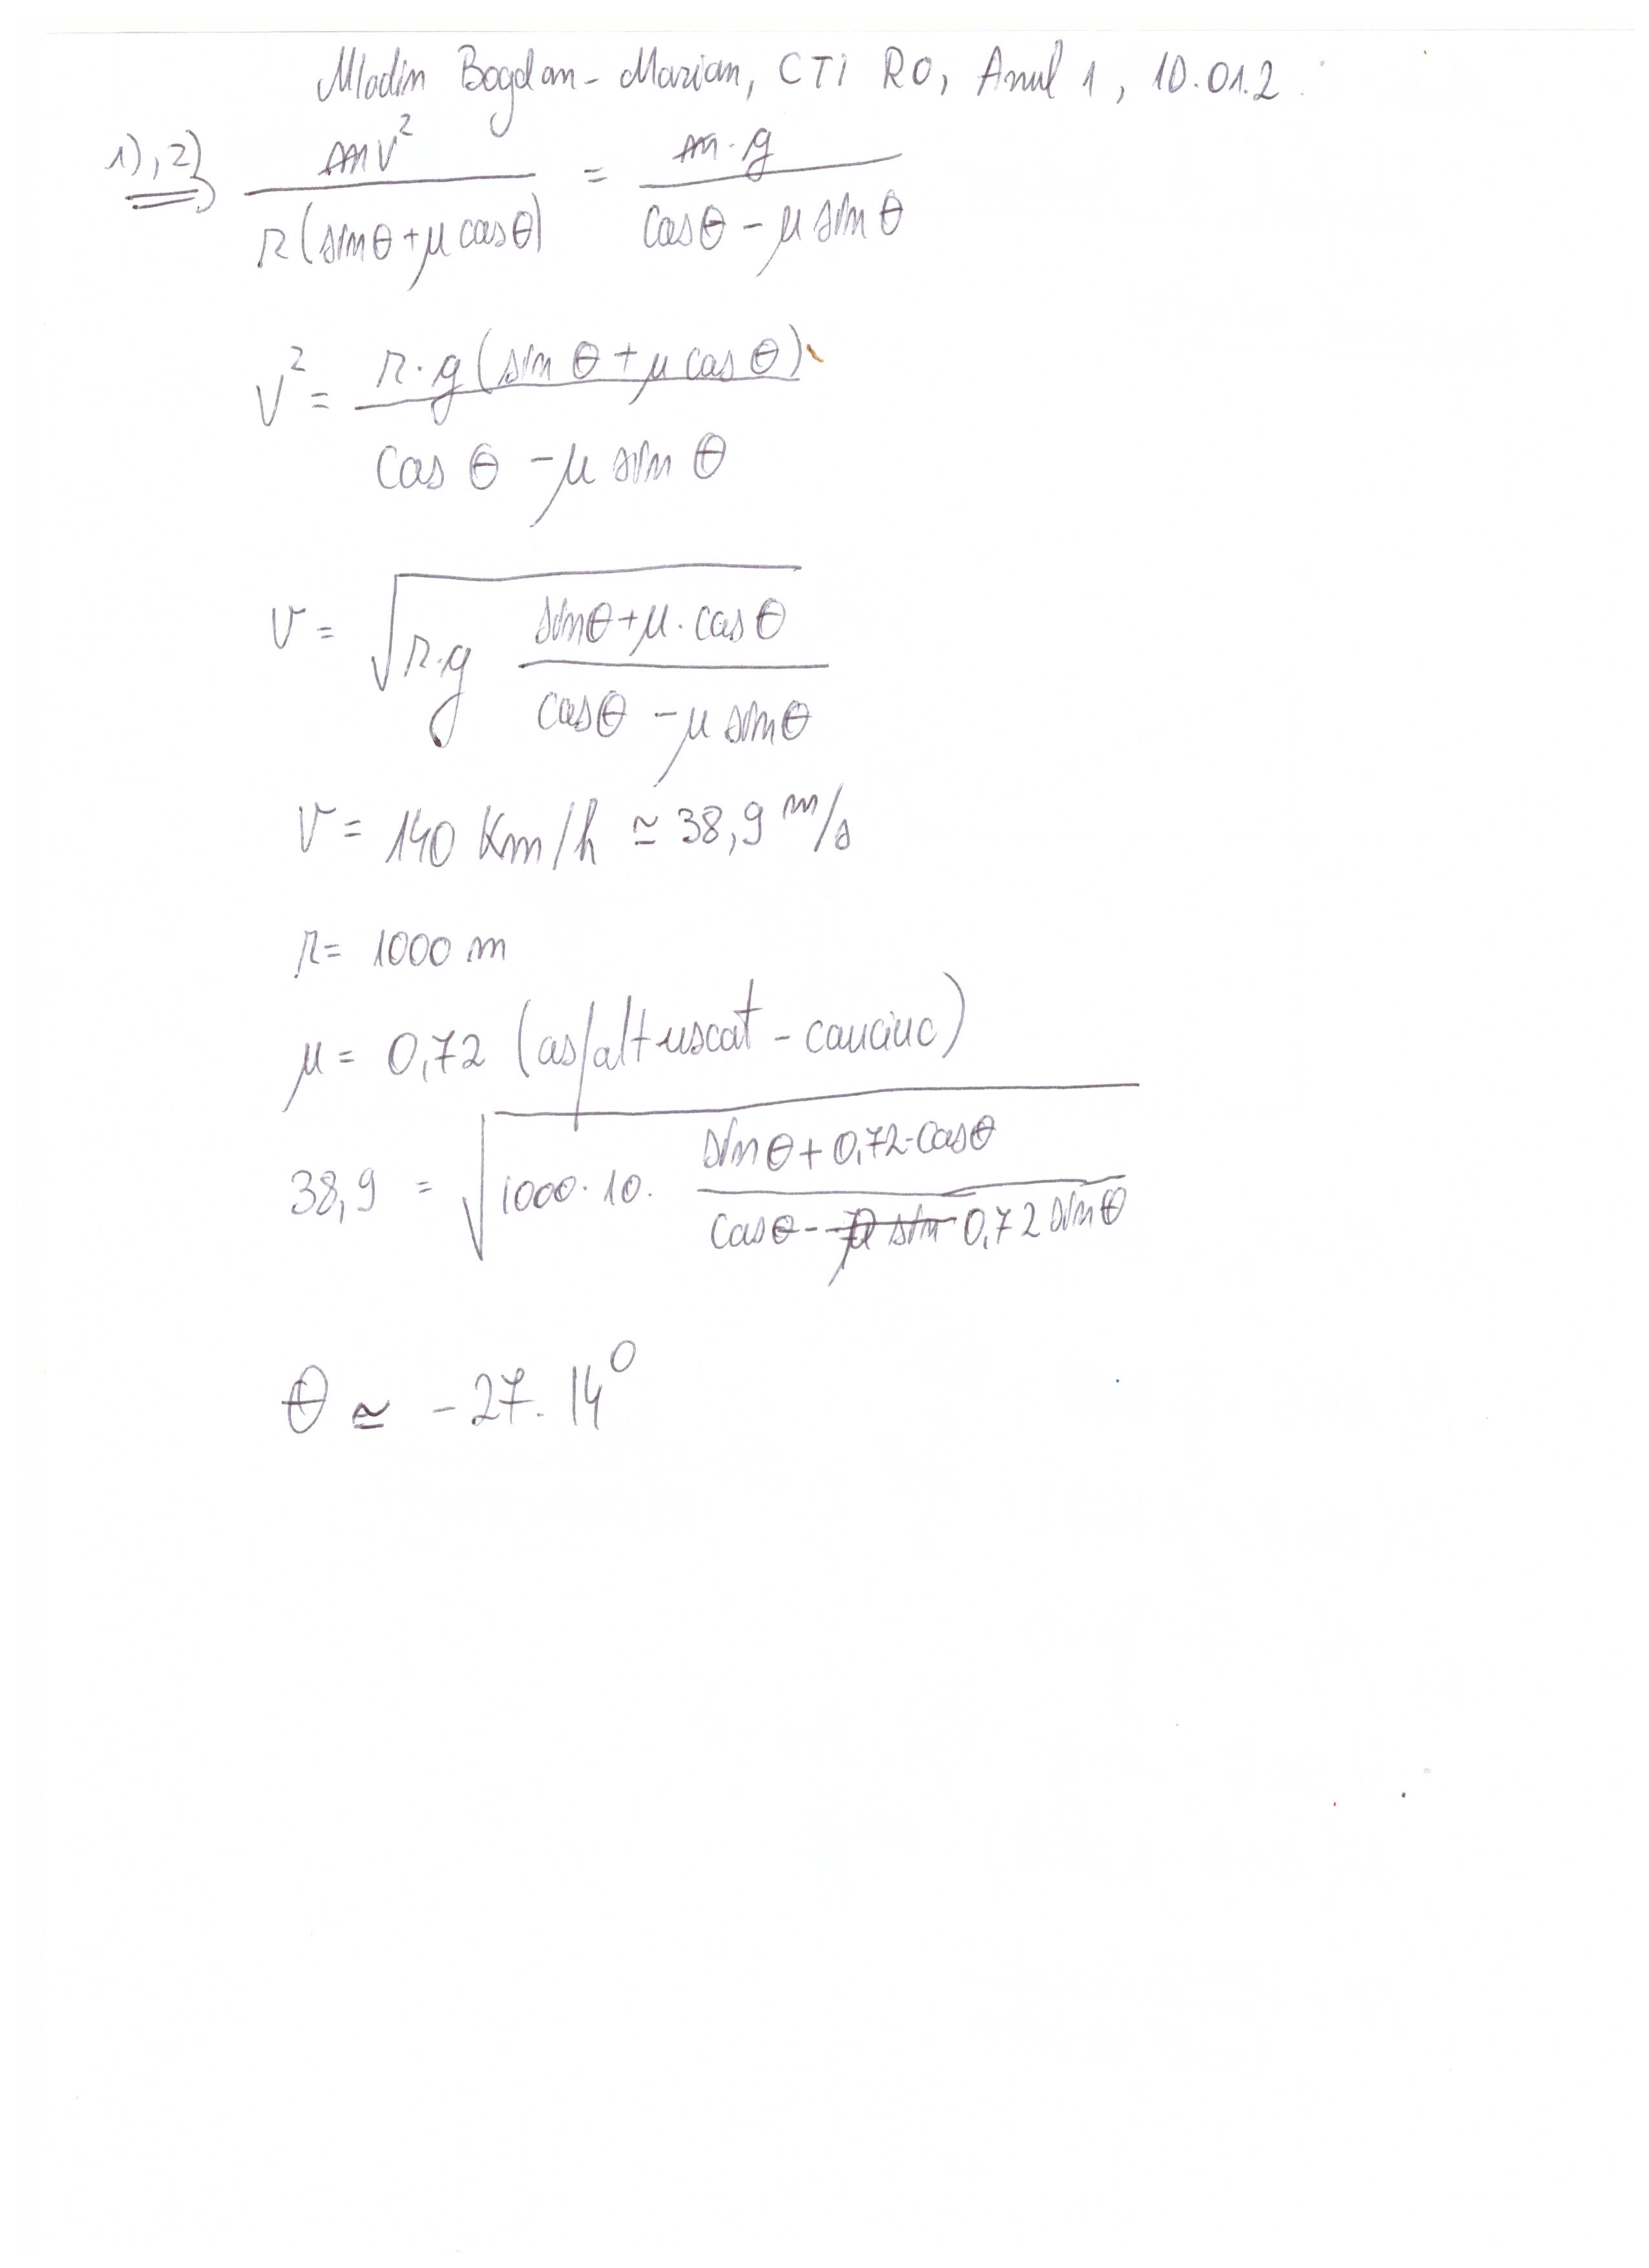 Mladin Bogdan-Marian, CTI RO, Anul 1, 10.01.2
1), 2) ⇒ mv² / r(sinθ+μcosθ) = m·g / cosθ - μ sinθ
v² = r·g(sin θ + μ cos θ) / cos θ - μ sin θ
v = √(r·g (sinθ+μ·cosθ) / (cosθ - μ sinθ))
v = 140 Km/h ≃ 38,9 m/s
r = 1000 m
μ = 0,72 (asfalt uscat - cauciuc)
38,9 = √(1000·10· (sinθ+0,72·cosθ) / (cosθ - 0,72 sinθ))
θ ≃ -27.14°